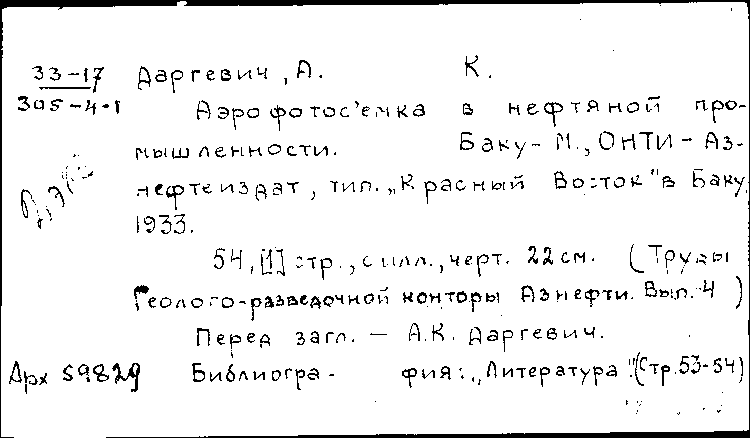 33-17 Даргевич, А. К.
305-4-1 Аэрофотос'емка в нефтяной про-
мышленности. Баку - М., ОНТИ - Аз-
нефтеиздат, тип. „Красный Восток" в Баку,
1933.
54, [1] стр., с илл., черт. 22 см. (Труды
Геолого-разведочной конторы Азнефти. Вып. 4)
Перед загл. — А.К. Даргевич.
Арх 59829 Библиогра- фия: „Литература". (Стр. 53-54)